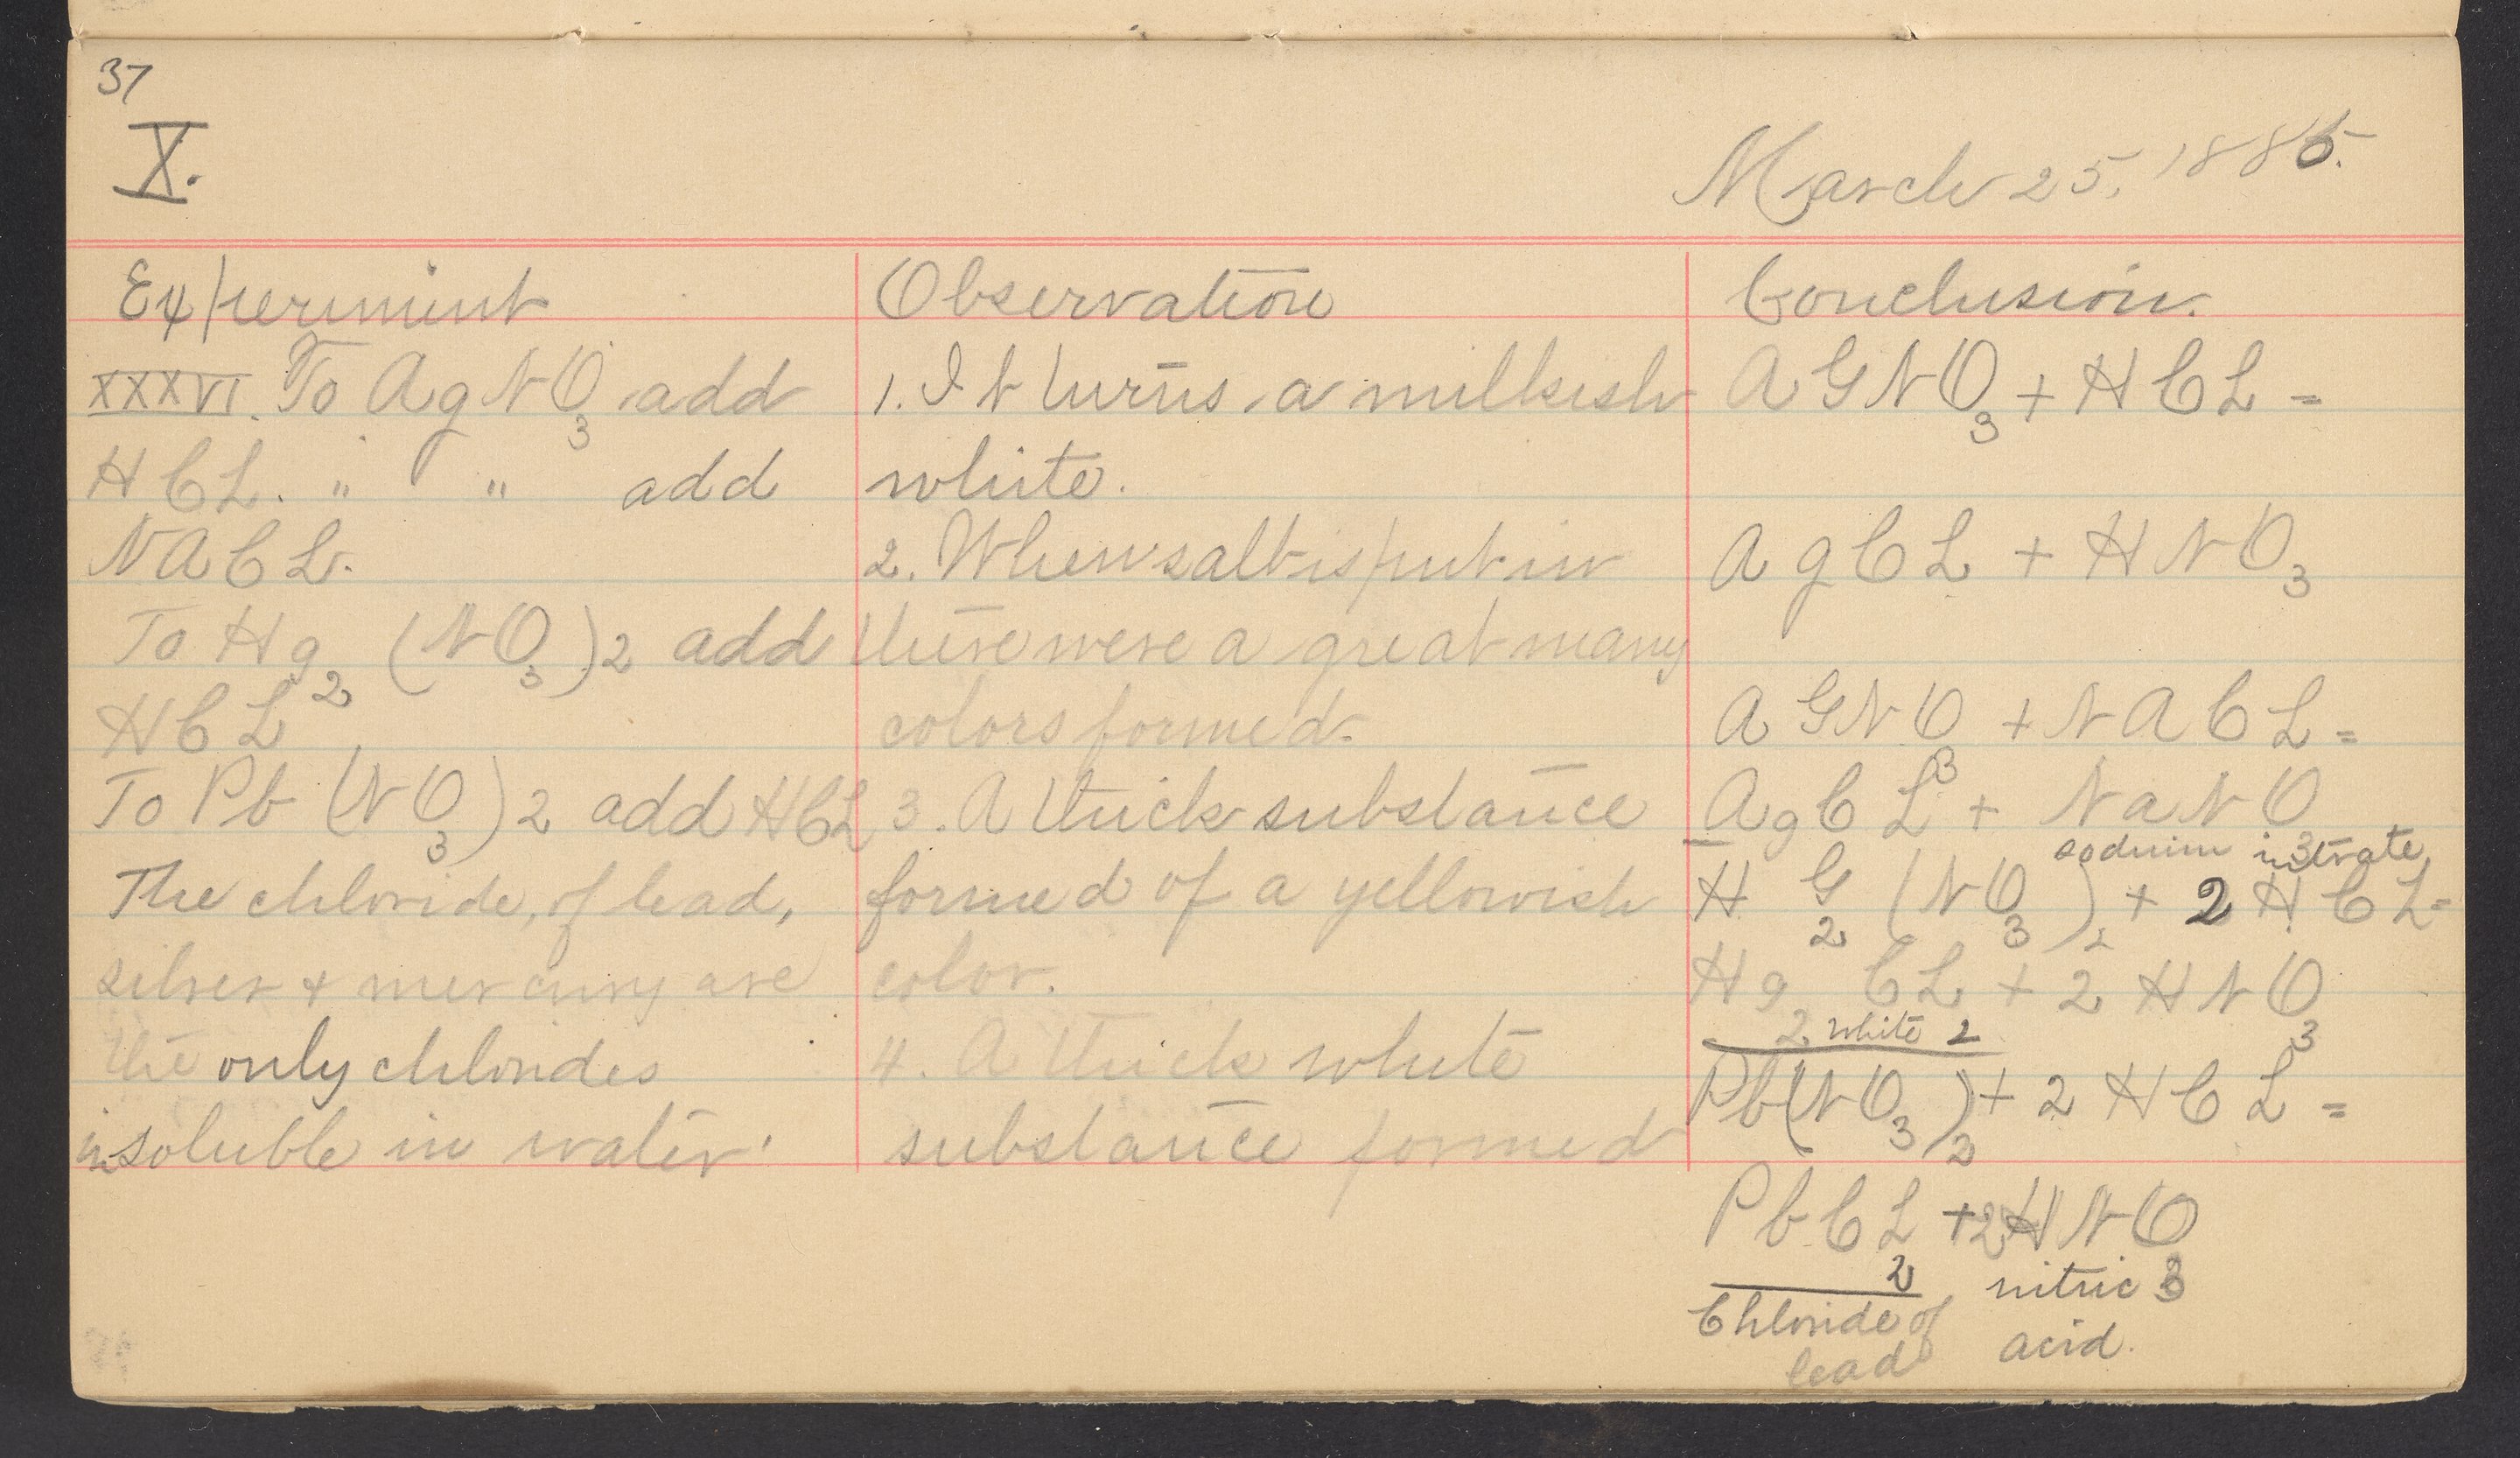 37
X.
March 25, 1885.
Experiment
XXXVI. To AgNO3 add
HCL. " " add
NACL.
To Hg2 (NO3)2 add
HCL
To Pb (NO3)2 add HCL
The chloride, of lead,
silver & mercury are
the only chlorides
insoluble in water.
Observation
1. It turns a milkish
white.
2. When salt is put in
there were a great many
colors formed.
3. A thick substance
formed of a yellowish
color.
4. A thick white
substance formed
Conclusion.
AGNO3 + HCL =
AgCL + HNO3
AGNO3 + NACL =
AgCL + NaNO3
sodium nitrate
HG2 (NO3)2 + 2HCL =
Hg2CL2 + 2HNO3
white
Pb(NO3)2 + 2HCL =
PbCL2 + 2HNO3
Chloride of
lead
nitric
acid.